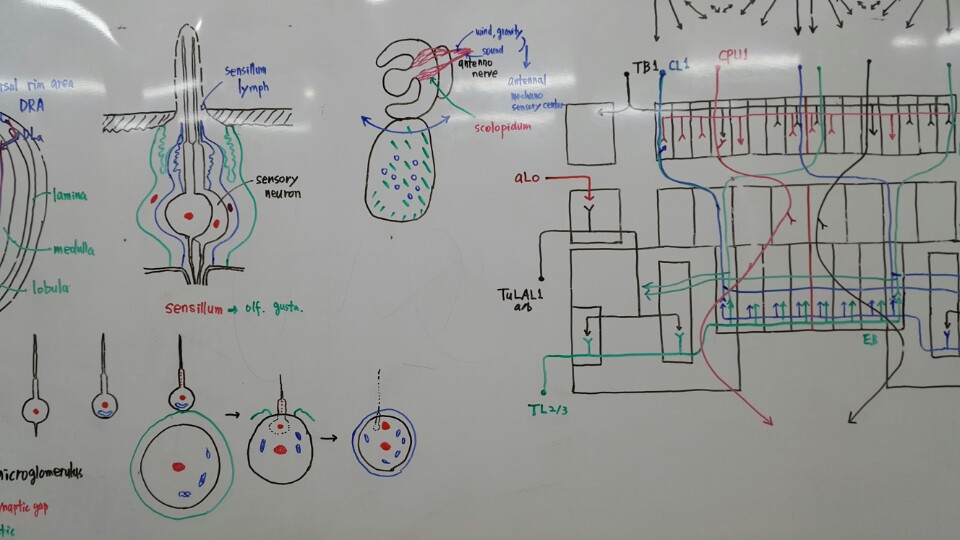 rsal rim area
DRA
DLa
lamina
medulla
lobula
sensillum
lymph
sensory
neuron
sensillum → olf. gusta.
wind, gravity
sound
antenno
nerve
antennal
mechano
sensory center
scolopidum
TB1
CL1
CPU1
aLo
TuLAL1
a/b
TL2/3
EB
icroglomerulus
naptic gap
tic